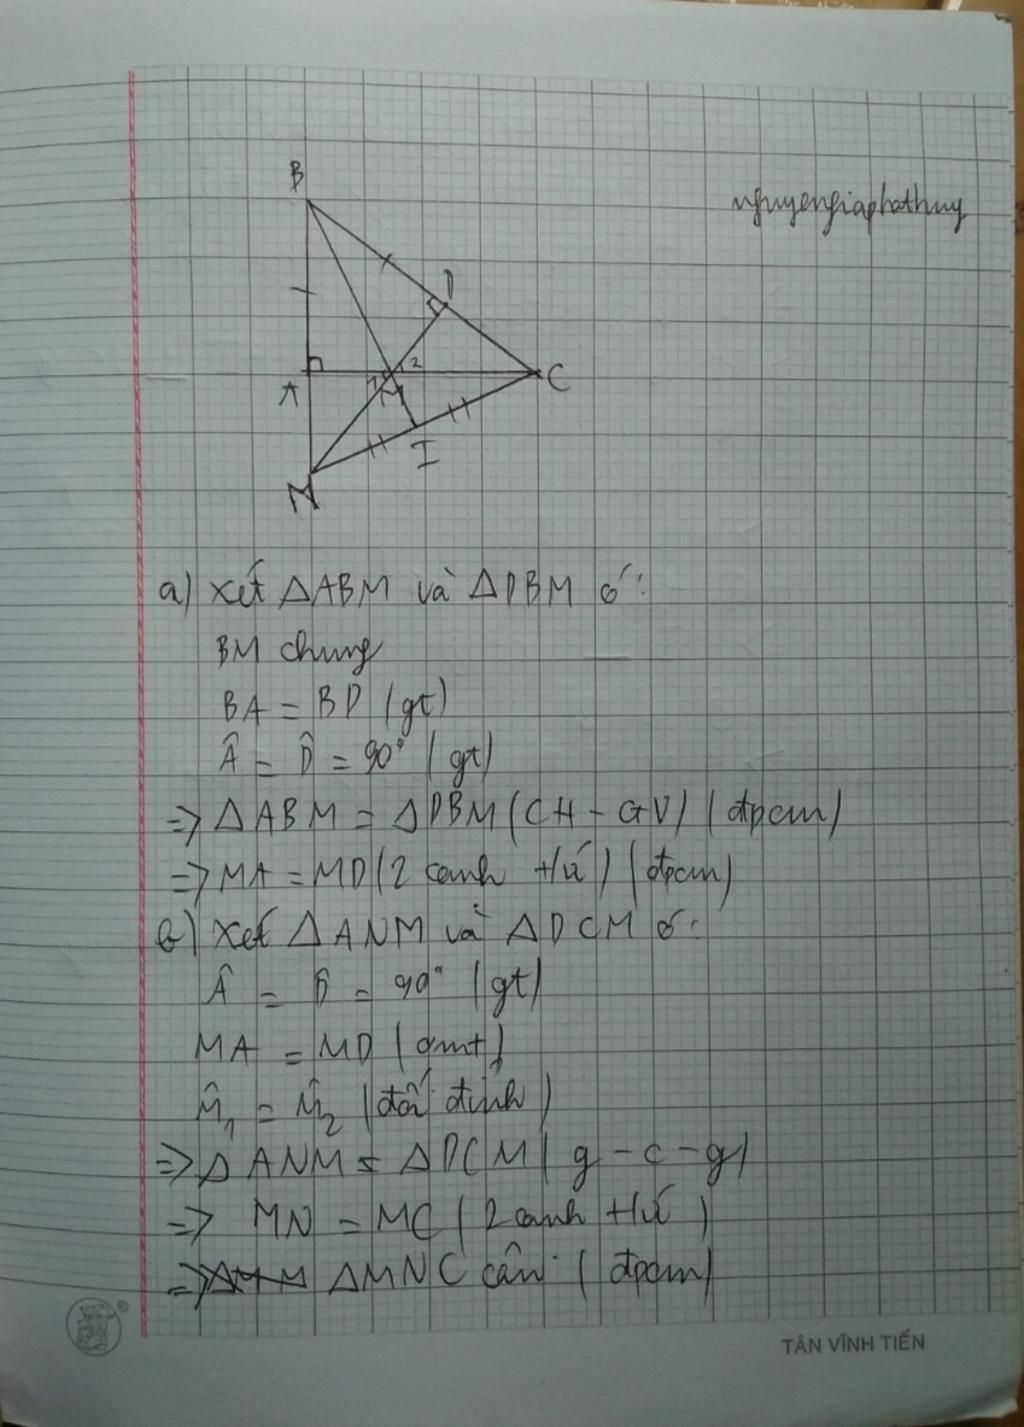 B
nguyengiaphathuy
D
2
A
1
M
C
I
N
a) xét ΔABM và ΔDBM có:
BM chung
BA = BD (gt)
Â = D̂ = 90° (gt)
=> ΔABM = ΔDBM (CH - GV) (đpcm)
=> MA = MD (2 cạnh t/ứ) (đpcm)
b) Xét ΔANM và ΔDCM có:
Â = D̂ = 90° (gt)
MA = MD (cmt)
M̂₁ = M̂₂ (đối đỉnh)
=> ΔANM = ΔDCM (g - c - g)
=> MN = MC (2 cạnh t/ứ)
=> ΔMNC cân (đpcm)
TÂN VĨNH TIẾN